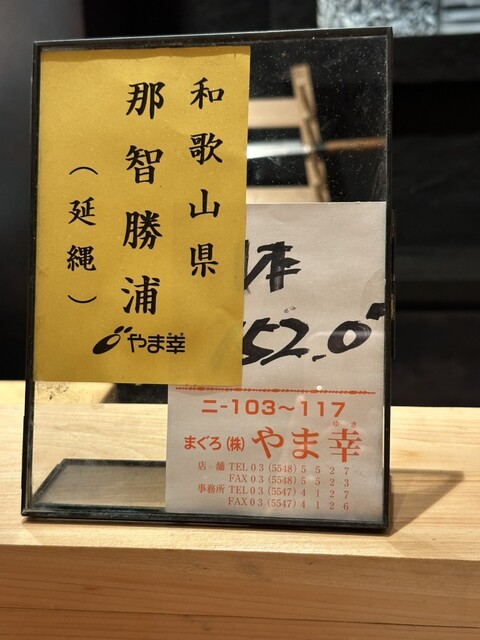 和歌山県
那智勝浦
（延縄）
やま幸
52.0
ニ-103～117
まぐろ(株)やま幸
ゆき
店舗 TEL03(5548)5527
FAX03(5548)5523
事務所 TEL03(5547)4127
FAX03(5547)4126